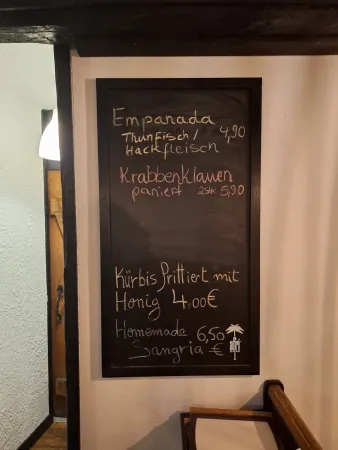 Empanada
Thunfisch/ 4,90
Hackfleisch
Krabbenklauen
paniert 2stk 5,90
Kürbis Frittiert mit
Honig 4.00€
Homemade 6,50
Sangria €